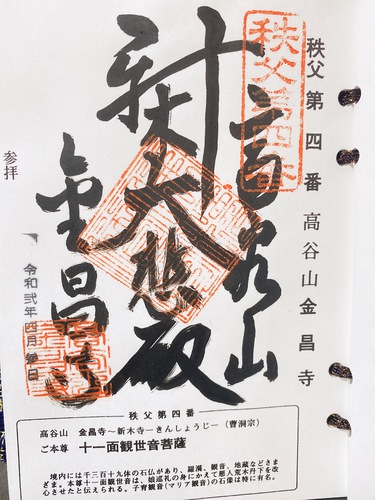 秩父第四番 高谷山金昌寺
秩父第四番
高谷山
大悲殿
金昌寺
参拝
令和弐年四月 日
秩父第四番
高谷山 金昌寺〜新木寺―きんしょうじ―(曹洞宗)
ご本尊 十一面観世音菩薩
境内には千三百十九体の石仏があり、羅漢、観音、地蔵などさま
ざま。本尊十一面観世音は、娘巡礼の身にかえて悪人荒木丹下を改
心させたと伝えられる。子育観音(マリア観音)の石像は特に有名。